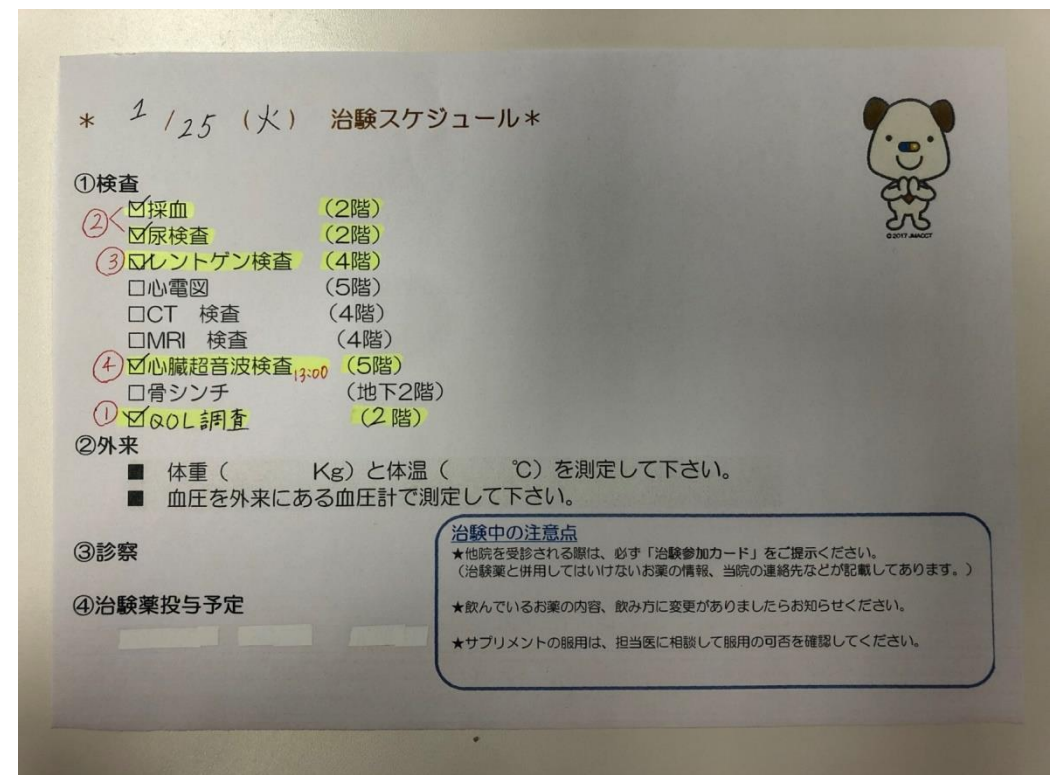 * 1/25 (火) 治験スケジュール*
①検査
② ☑採血 (2階)
☑尿検査 (2階)
③ ☑レントゲン検査 (4階)
□心電図 (5階)
□CT 検査 (4階)
□MRI 検査 (4階)
④ ☑心臓超音波検査 13:00 (5階)
□骨シンチ (地下2階)
① ☑QOL調査 (2階)
②外来
■ 体重( Kg)と体温( ℃)を測定して下さい。
■ 血圧を外来にある血圧計で測定して下さい。
③診察
④治験薬投与予定
治験中の注意点
★他院を受診される際は、必ず「治験参加カード」をご提示ください。
(治験薬と併用してはいけないお薬の情報、当院の連絡先などが記載してあります。)
★飲んでいるお薬の内容、飲み方に変更がありましたらお知らせください。
★サプリメントの服用は、担当医に相談して服用の可否を確認してください。
©2017 JMACCT